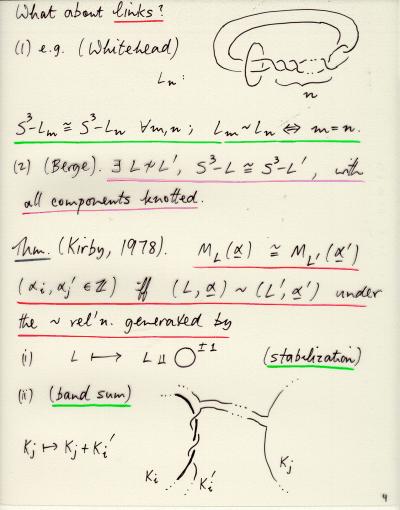 What about links?
(1) e.g. (Whitehead)
Lₙ:
n
S³-Lₘ ≅ S³-Lₙ ∀m,n ; Lₘ~Lₙ ⇔ m=n.
(2) (Berge). ∃ L≁L', S³-L ≅ S³-L', with
all components knotted.
Thm. (Kirby, 1978). M_L(α) ≅ M_L'(α')
(αᵢ, αⱼ' ∈ ℤ) iff (L, α) ~ (L', α') under
the ~ rel'n. generated by
(i) L ↦ L ⊔ ◯^±1 (stabilization)
(ii) (band sum)
Kⱼ ↦ Kⱼ + Kᵢ'
Kᵢ Kᵢ' Kⱼ
4